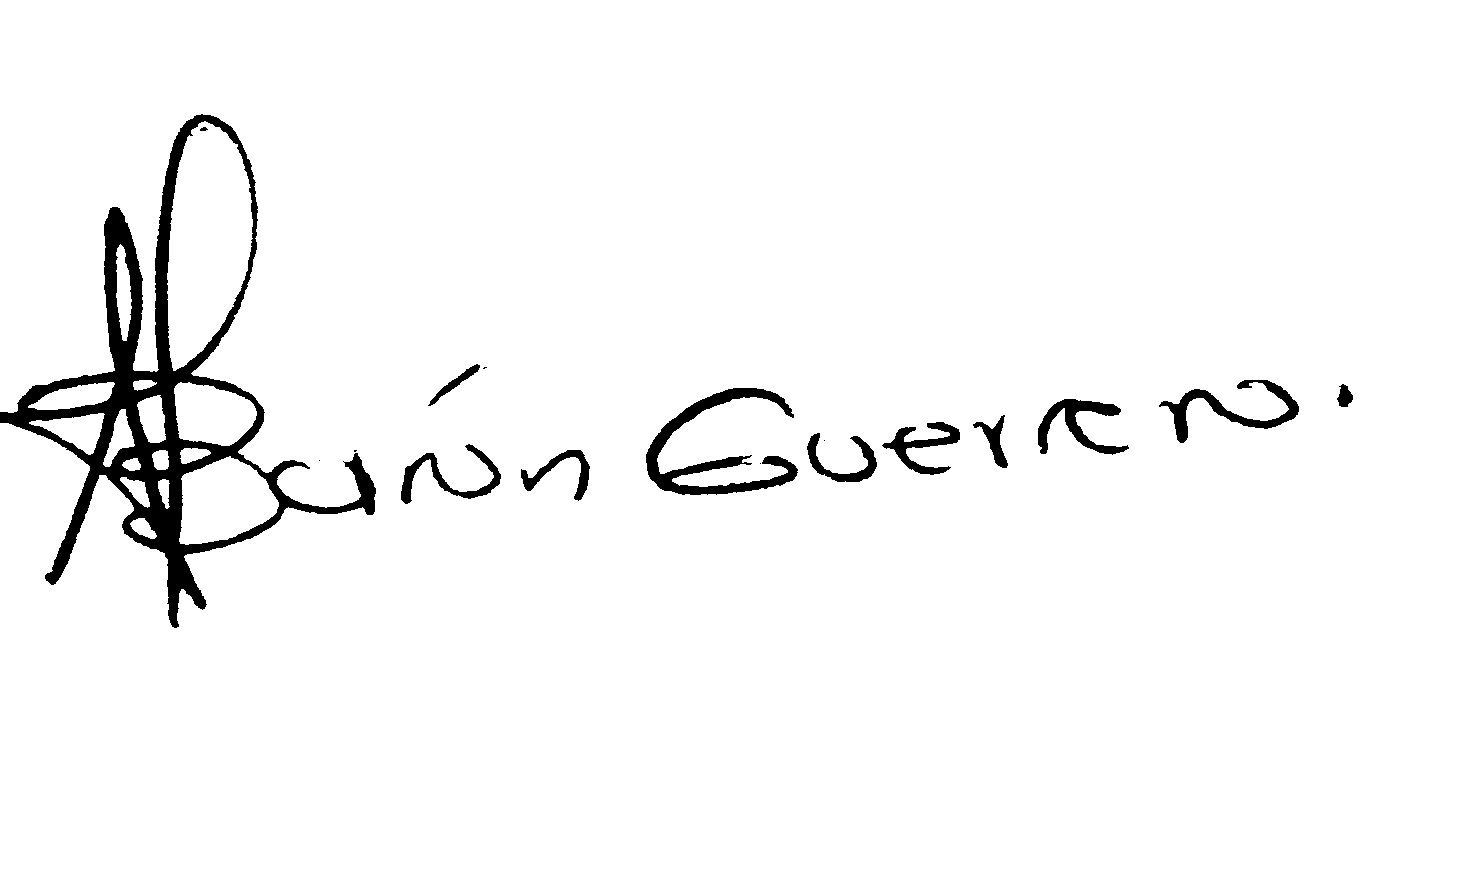 Barón Guerrero.